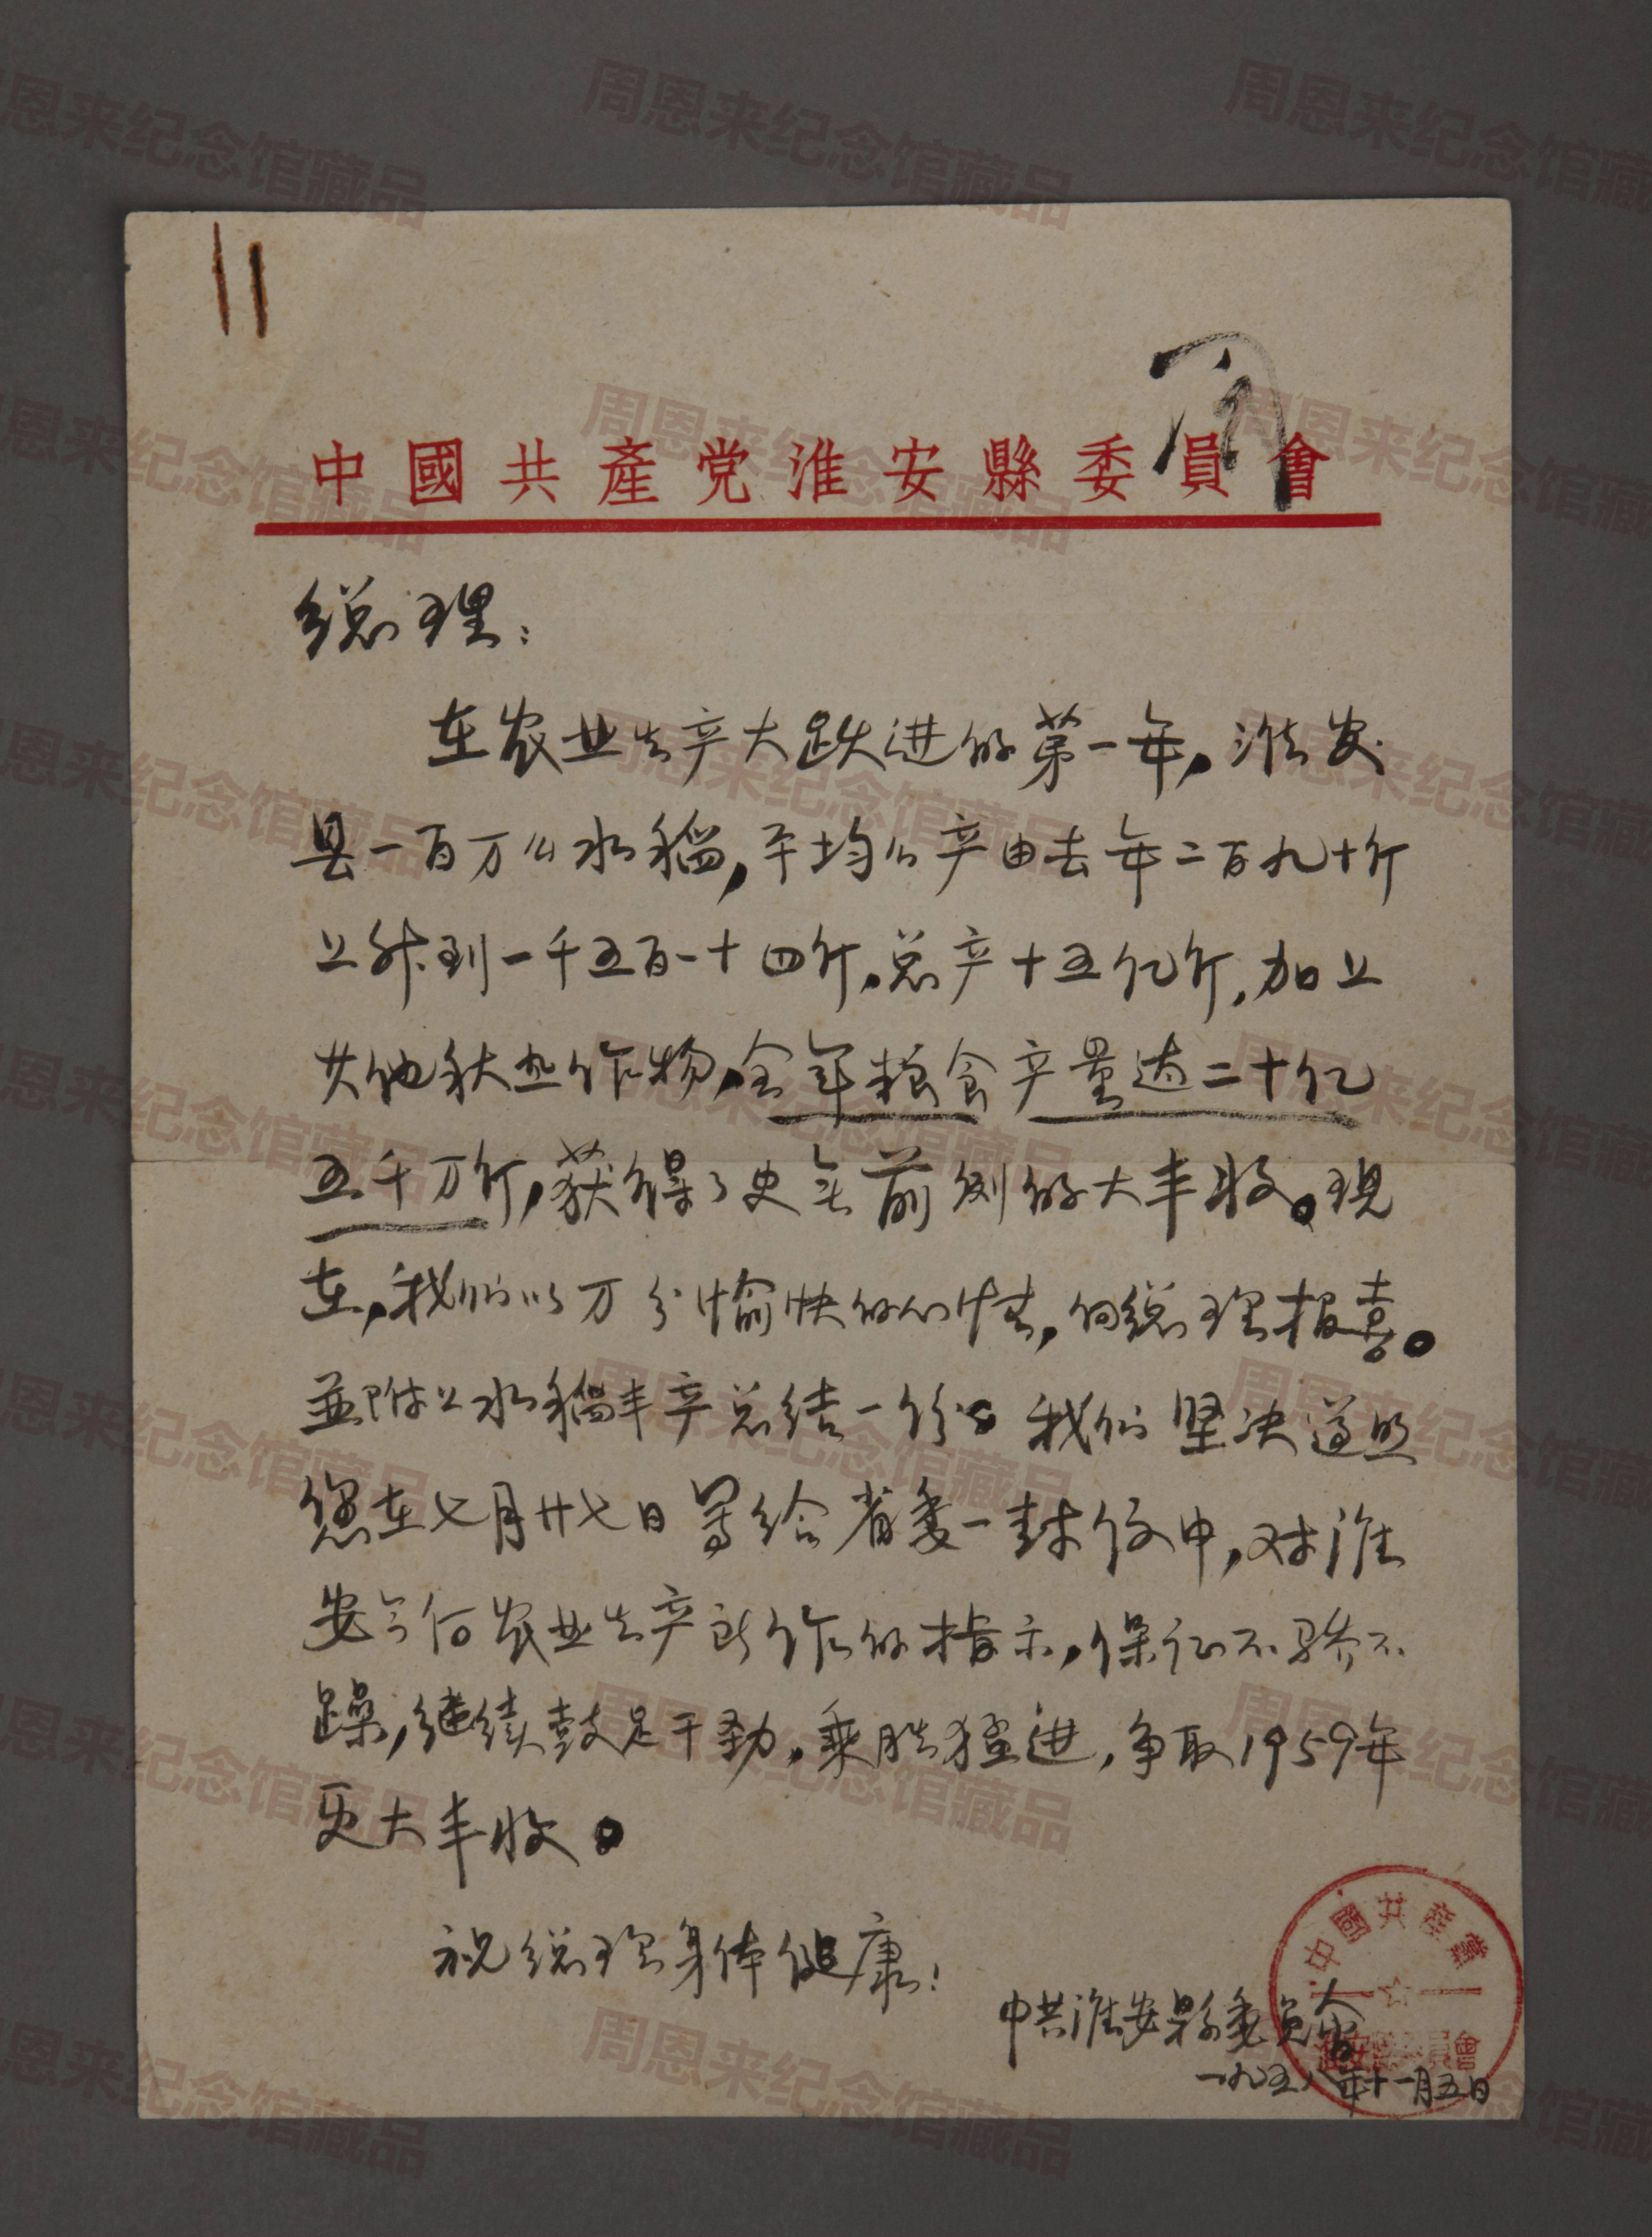 中國共產党淮安縣委員會
总理：
在农业生产大跃进的第一年，淮安
县一百万亩水稻，平均亩产由去年二百九十斤
上升到一千五百一十四斤，总产十五亿斤，加上
其他秋熟作物，全年粮食产量达二十亿
五千万斤，获得了史无前例的大丰收。现
在，我们以万分愉快的心情，向总理报喜。
並附上水稻丰产总结一份。我们坚决遵照
您在七月廿七日写给省委一封信中，对淮
安今后农业生产所作的指示，保证不骄不
躁，继续鼓足干劲，乘胜猛进，争取1959年
更大丰收。
祝总理身体健康！
中共淮安县委员会
一九五八年十一月五日
中國共產黨
淮安縣委員會
周恩来纪念馆藏品